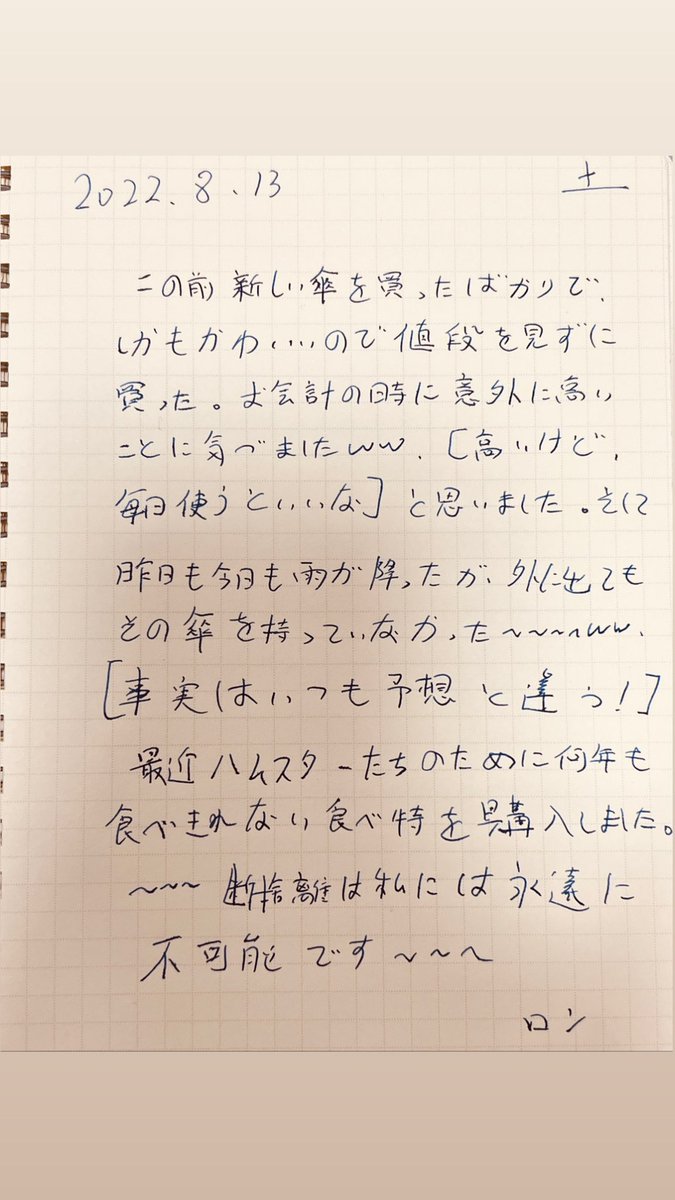 2022.8.13 土
この前新しい傘を買ったばかりで、
しかもかわいいので値段を見ずに
買った。お会計の時に意外に高い
ことに気づましたww.[高いけど、
毎日使うといいな]と思いました。そして
昨日も今日も雨が降ったが、外に出ても
その傘を持っていなかった~~~~ww.
[事実はいつも予想と違う!]
最近ハムスターたちのために何年も
食べきれない食べ特を購入しました。
~~~断捨離は私には永遠に
不可能です~~~
ロン